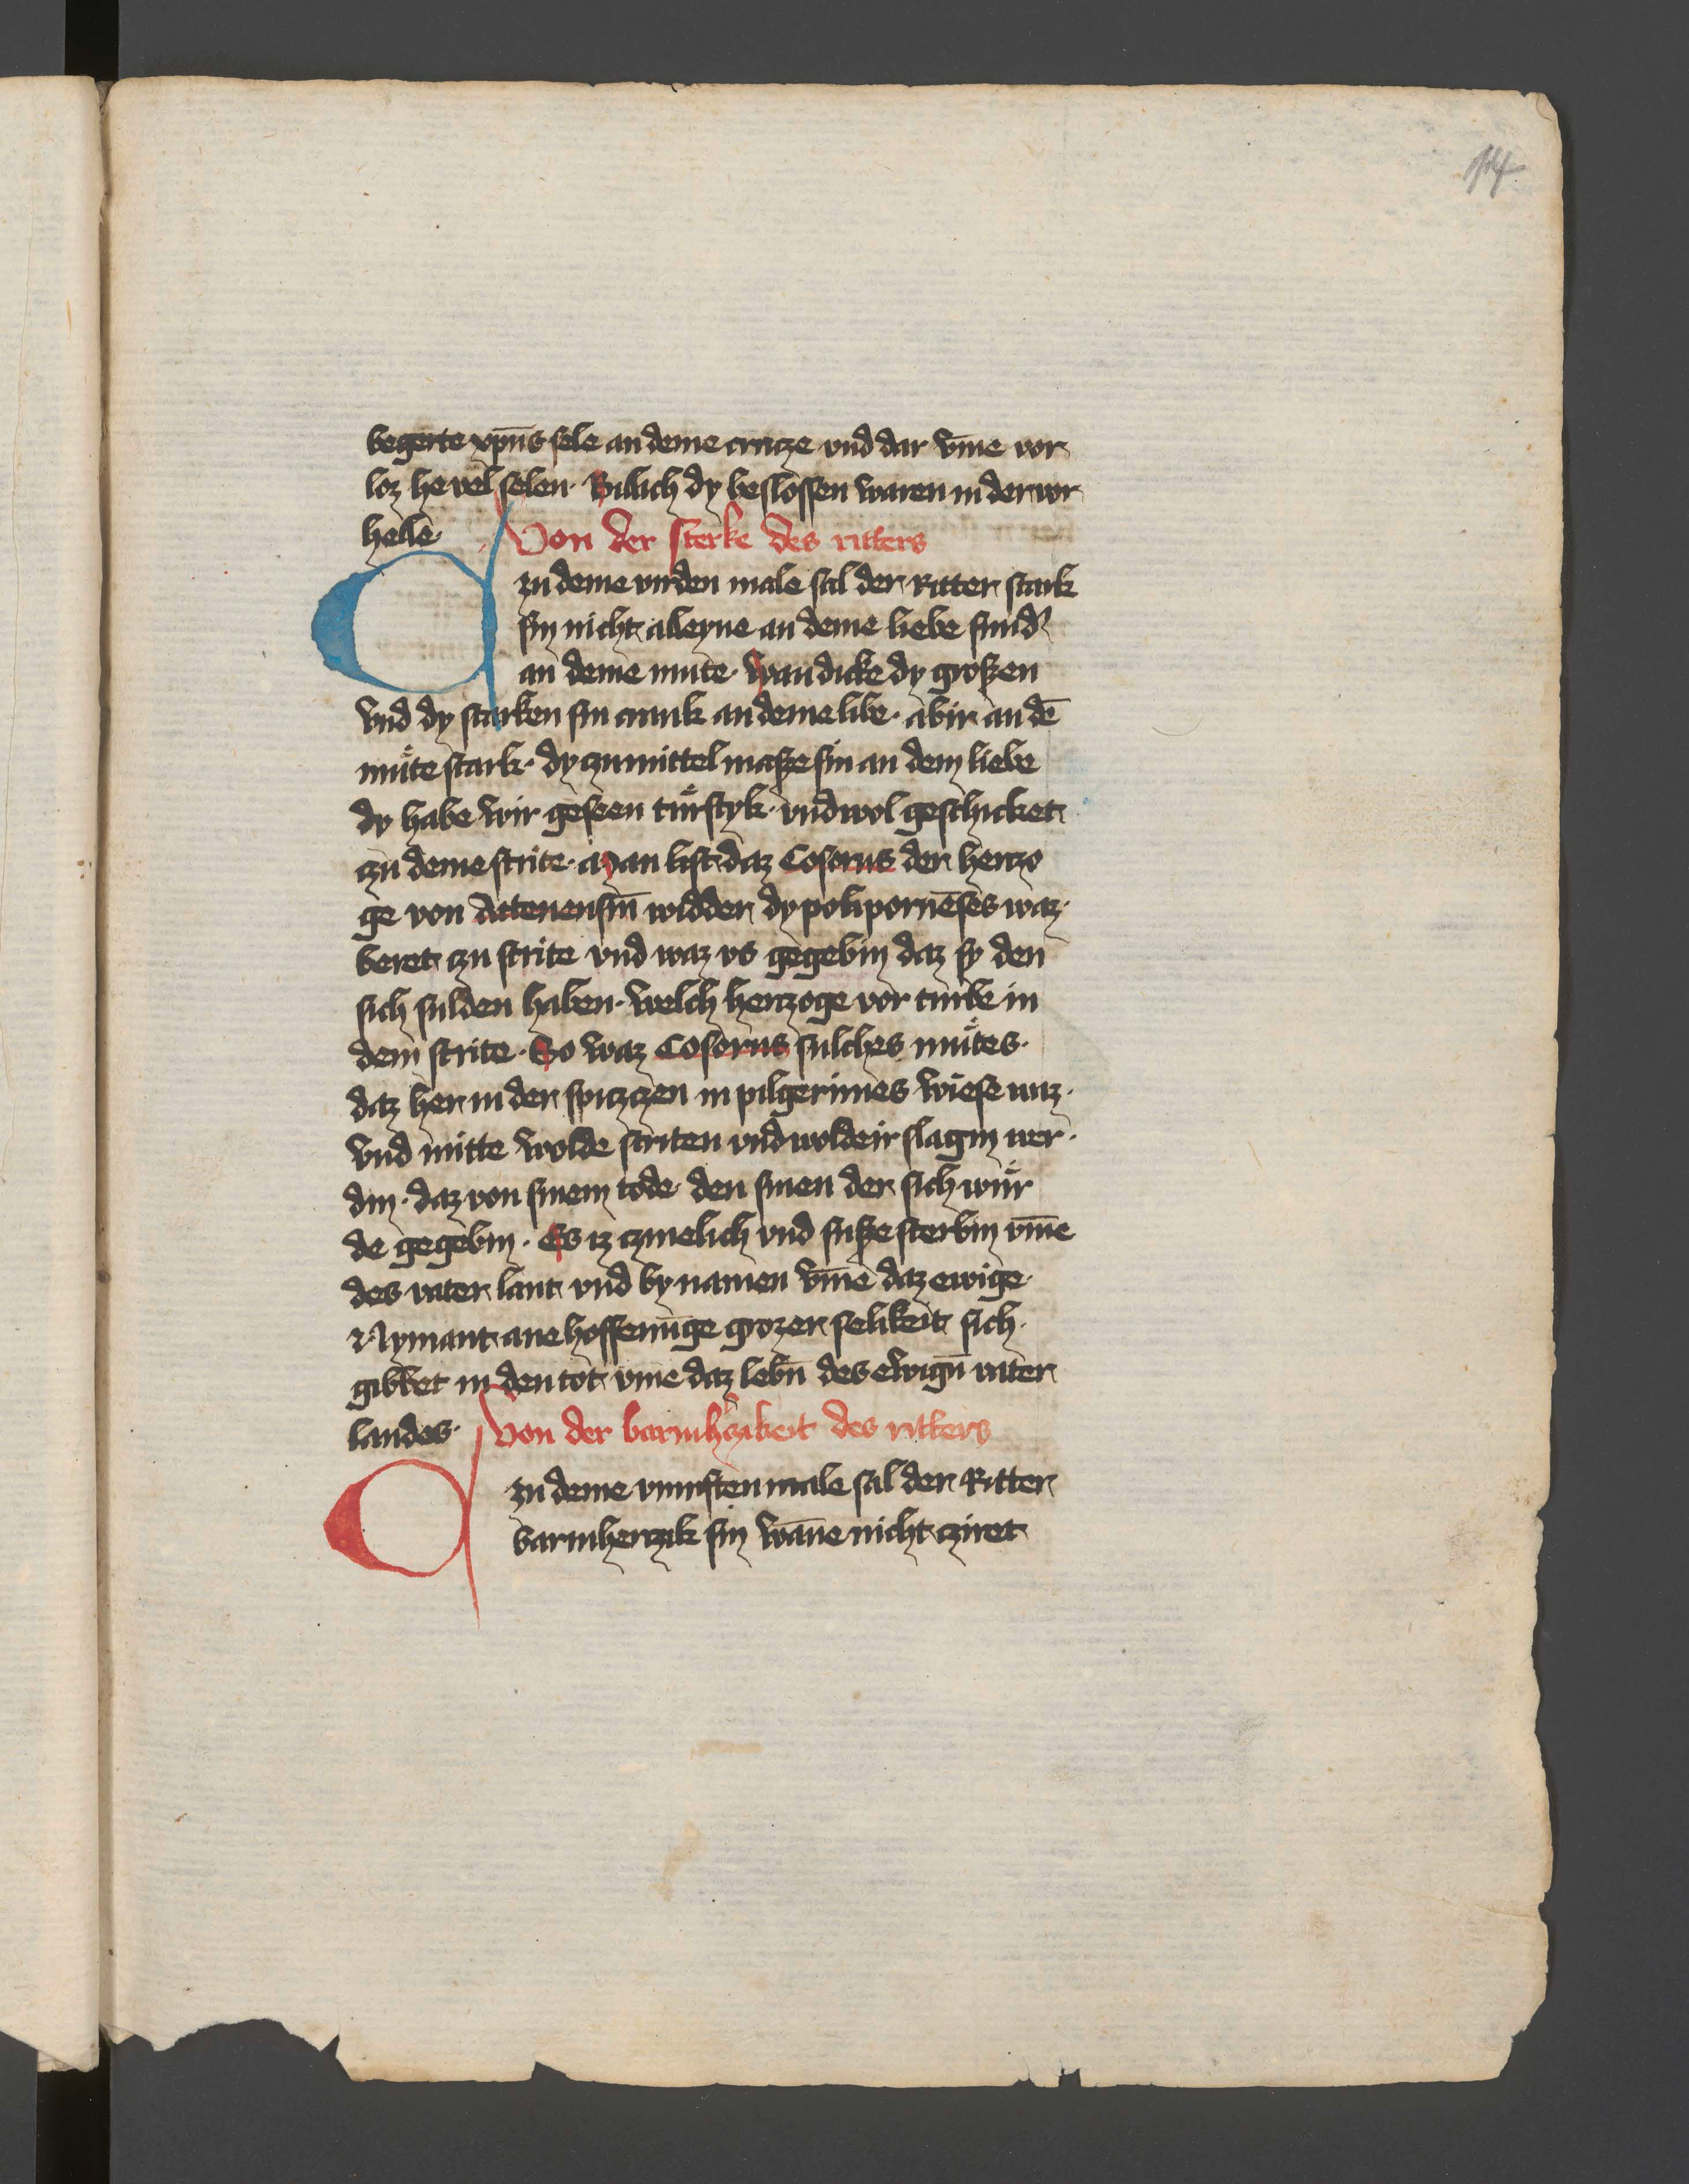 14
begerte xpūs sele an deme crucze vnd dar vm̄e vor
loz he vel selen. Billich dy beslossen waren in der vor
helle. Von der sterke des ritters
Czu deme virden male sal der Ritter stark
sin nicht alleyne an deme liebe sund'
an deme mute. Wan dicke dy großen
vnd dy starken sin crank an deme libe. abir an dē
muͤte stark. dy czu mittel maße sin an dem liebe
dy habe wir geseen tuͤrstyk. vnd wol geschicket
czu deme strite. Man list daz Cosorus der herczo
ge von Attenensin̄ widder dy polipornēses waz.
beret czu strite vnd waz vs gegebin daz sy den
sich sulden haben. welch herczoge vor turbe in
dem strite. So waz Cosorus sulches muͤtes.
daz her in der spiczczen in pilgerimes wiese waz.
vnd mitte wolde striten vnd wolde ir slagin wer.
din. daz von sinem tode den sinen der sich wuͤr
de gegebin. Es iz czmelich vnd suße sterbin vm̄e
des vater lant vnd by namen vm̄e daz ewige.
Nymant ane hoffenuge grozer selikeit sich.
gibbet in den tot vm̄e daz lebn̄ des ewign̄ vater
landes. Von der barmhczikeit des ritters
Czu deme vunften male sal der Ritter
barmherczik sin wāne nicht cziret